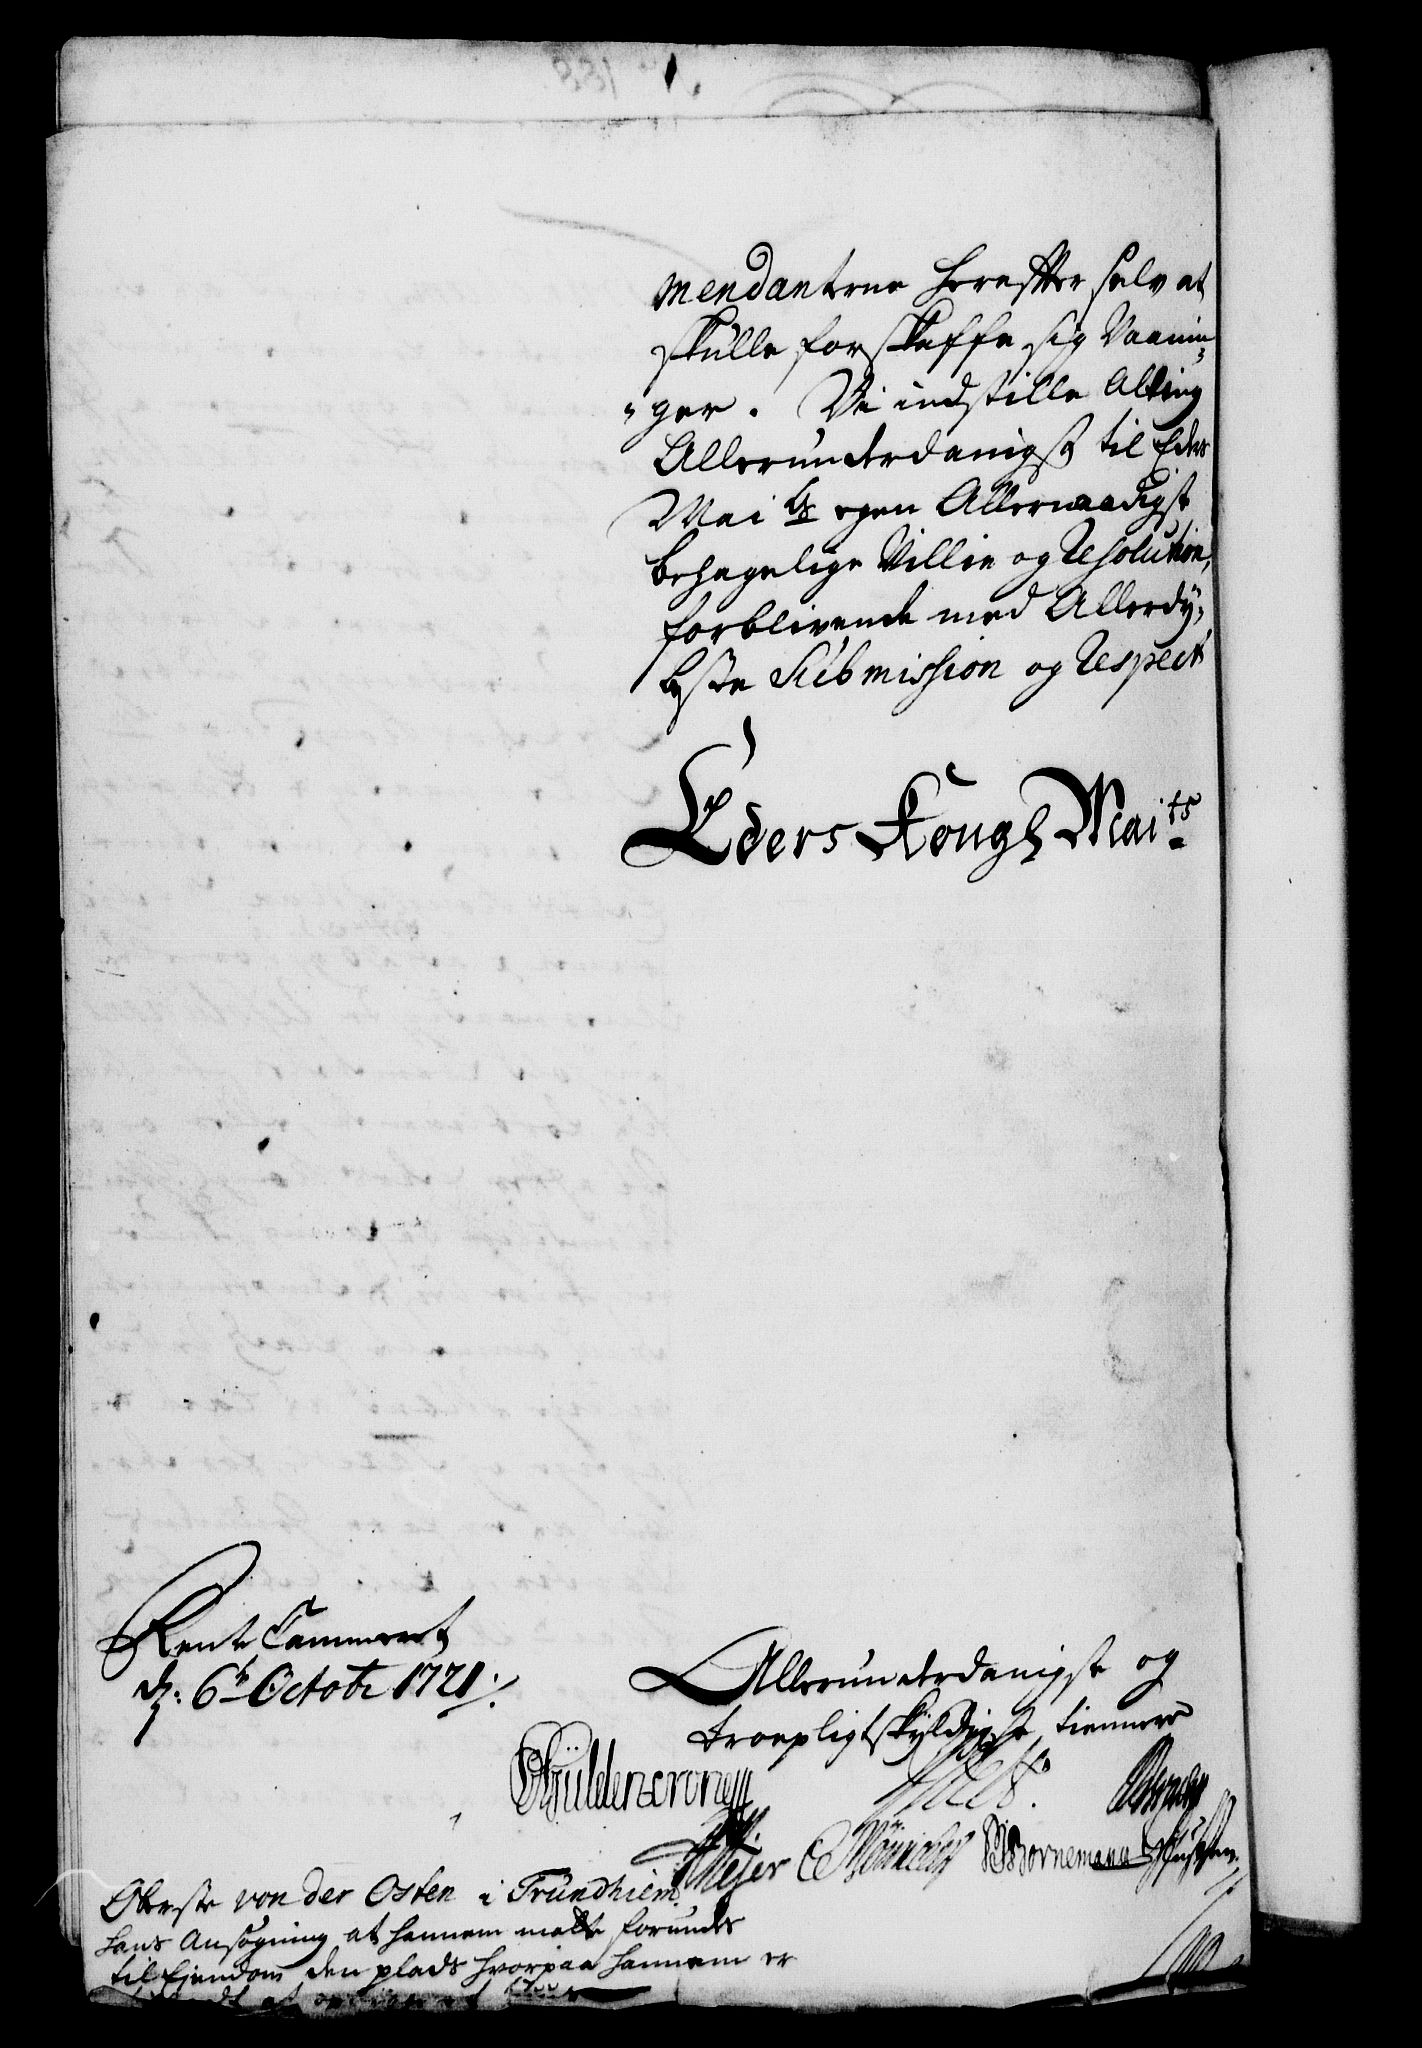 mendanterne herefter selv at
skulle forskaffe sig Vaanin-
-ger. Vi indstille Alting
Allerunderdanigst til Eders
Mai ts egen Allernaadigst
behagelige Villie og Resolution,
forblivende med Allerdy-
bste Submission og Respect
Eders Kongl Mai ts
Rente Cammeret
d. 6te Octobr 1721
Allerunderdanigste og
troepligtskyldigste tiennere
Güldencrone
Meyer Bornemann
Oberste von der Osten i Trundhiem
hans Ansøgning at hannem matte forundes
til Ejendom den plads hvorpaa hannem er